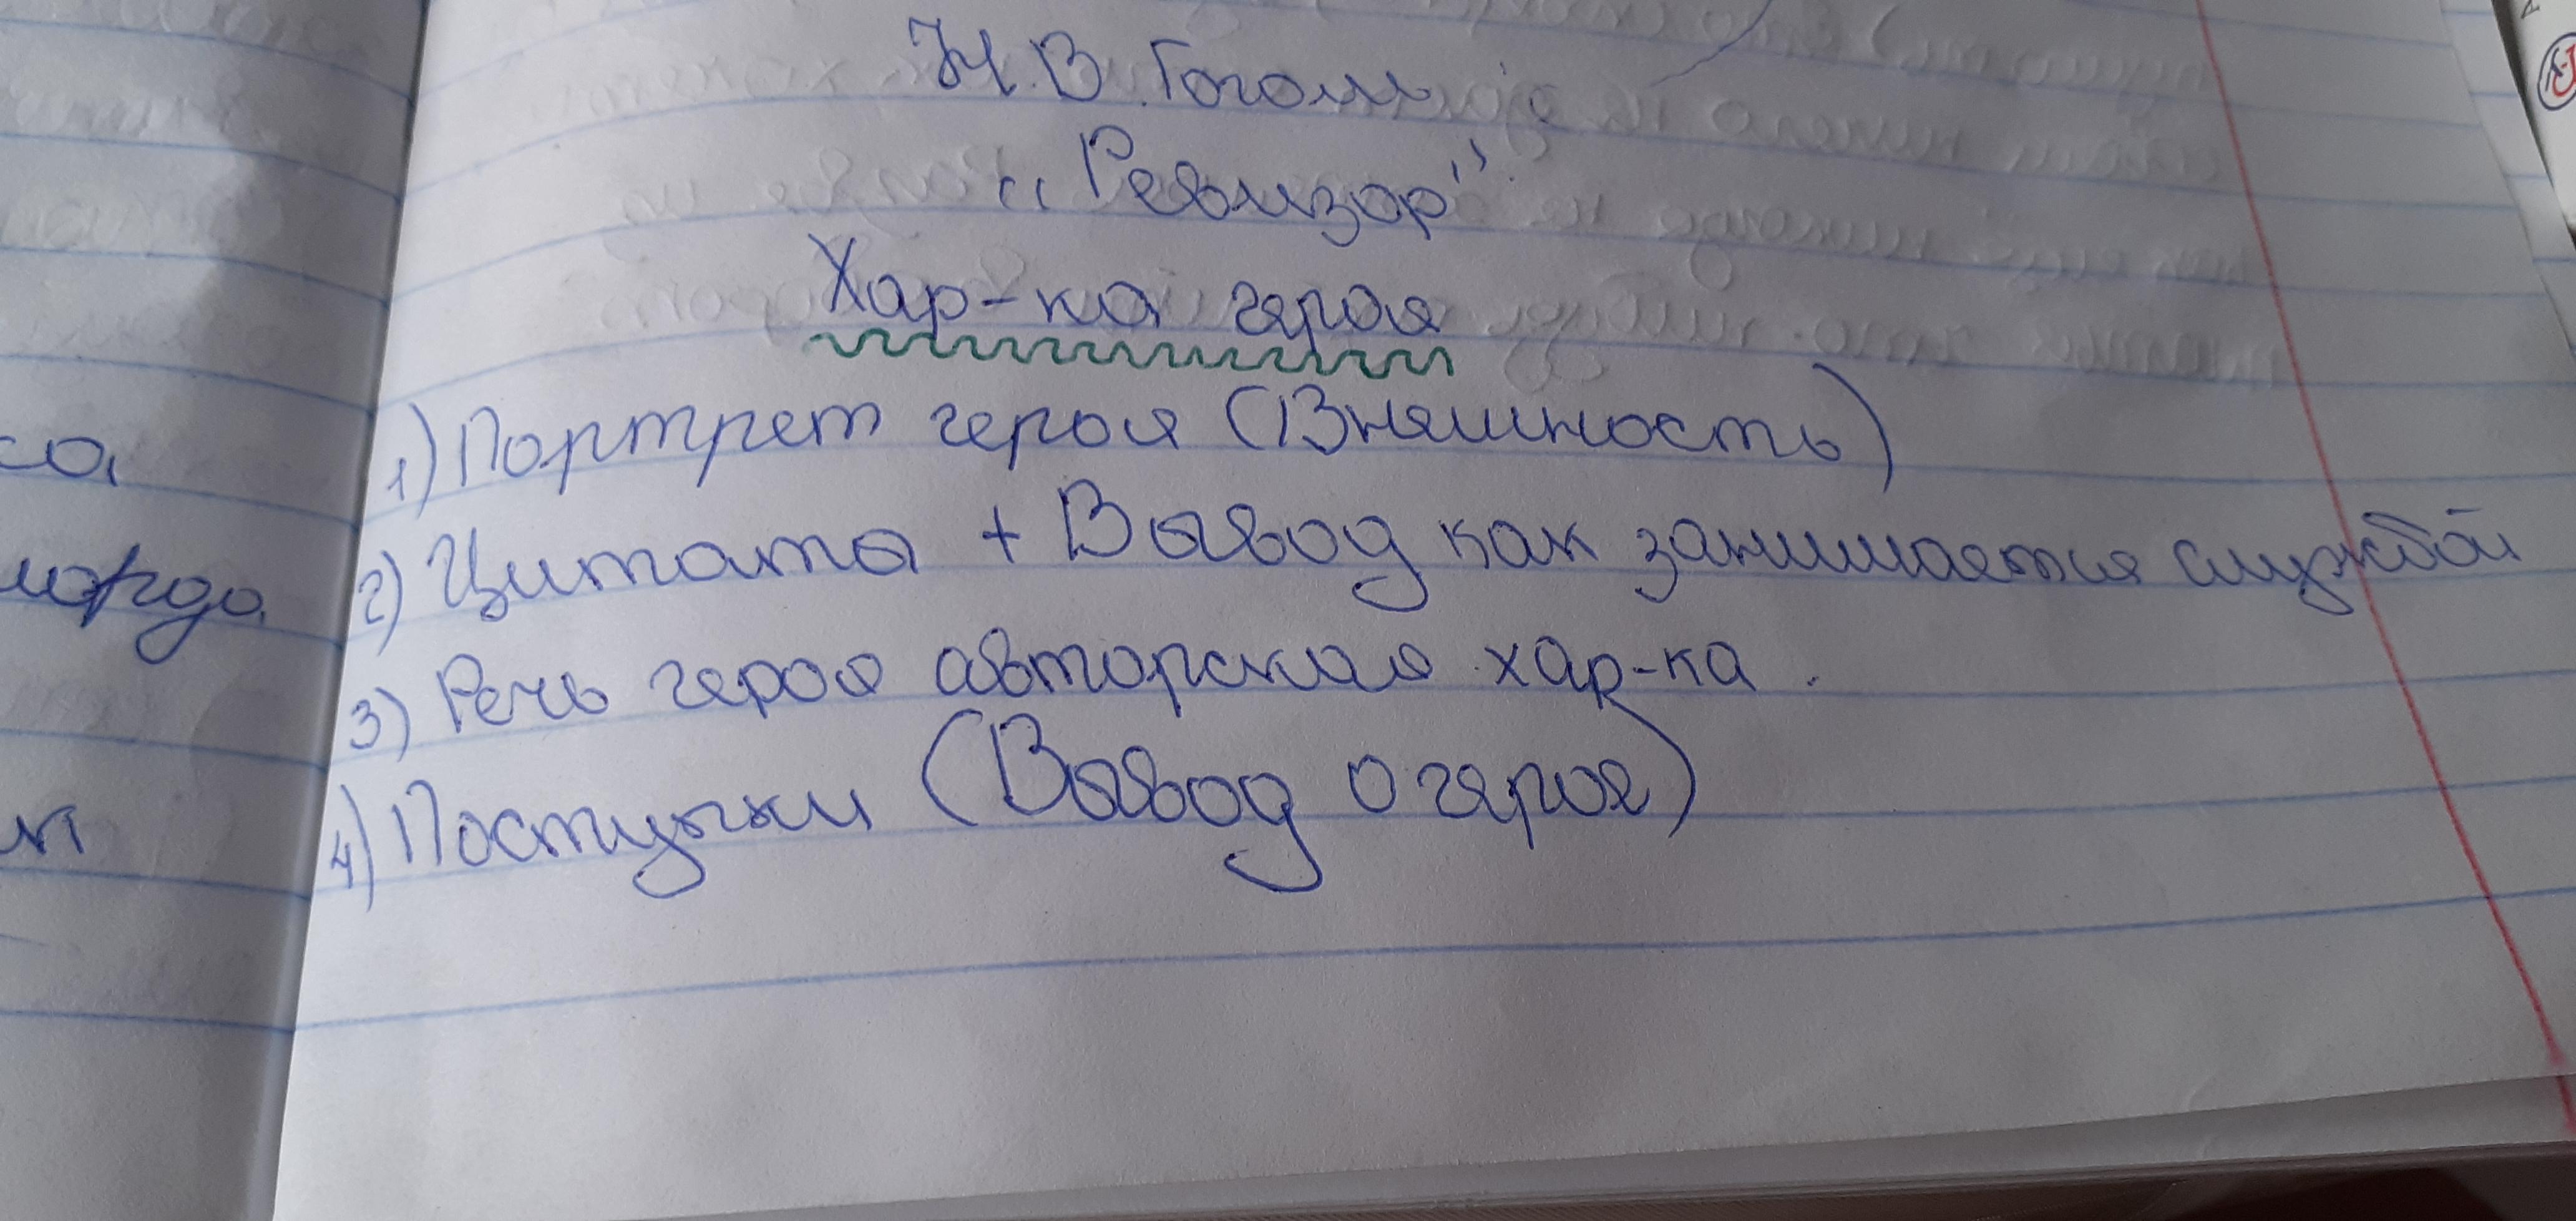 Н.В. Гоголь
„Ревизор"
Хар-ка героя
1) Портрет героя (Вняшность)
2) Цитаты + Вывод как занимается службой
3) Речь героя авторская хар-ка.
4) Поступки (Вывод о герое)